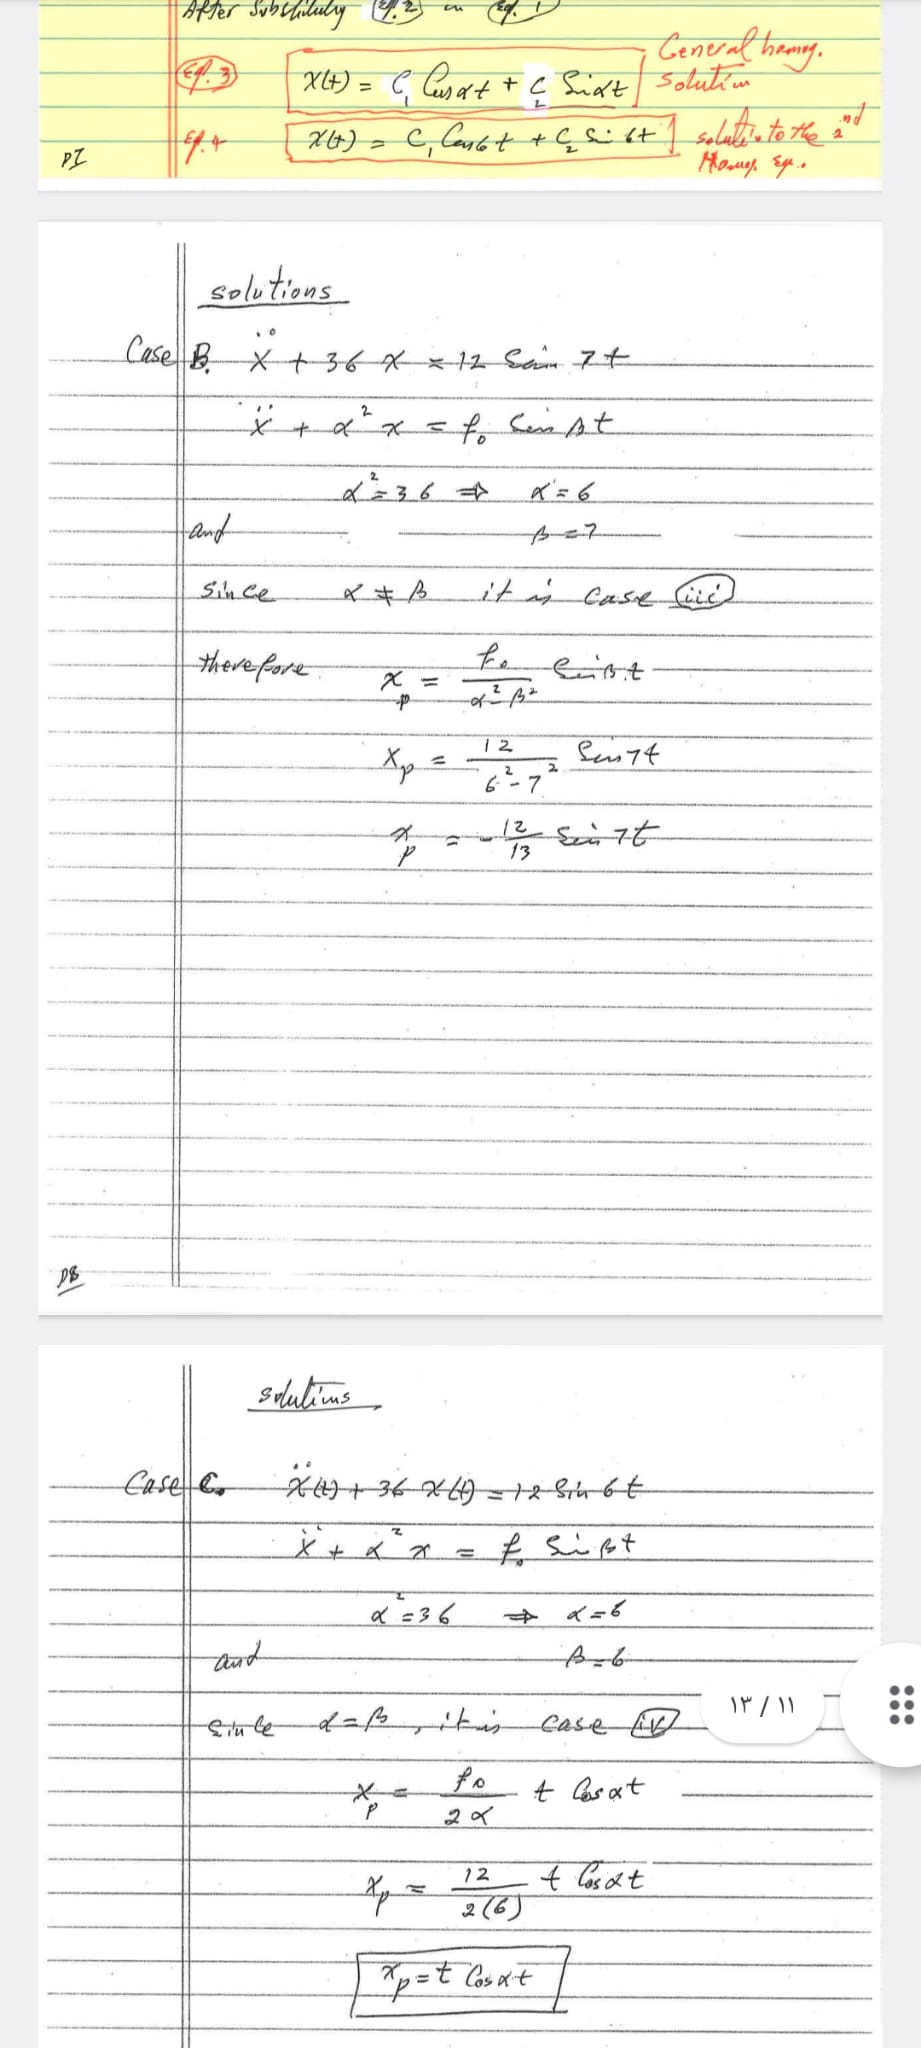 After Substituting (Eq. 2) in (Eq. 1)
General homog.
Eq. 3 X(t) = C₁ Cos αt + C₂ Sin αt solution
Eq. 4 X(t) = C₁ Cos 6t + C₂ Sin 6t solution to the 2nd
Homog. Eq.
PI
solutions
Case B. ẍ + 36 x = 12 Sin 7t
ẍ + α² x = f₀ Sin βt
α² = 36 ⇒ α = 6
and β = 7
Since α ≠ β it is case (iii)
therefore x_p = f₀ / α² β² Sin βt
x_p = 12 / 6² - 7² Sin 7t
x_p = - 12 / 13 Sin 7t
solutions
Case C. ẍ(t) + 36 x(t) = 12 Sin 6t
ẍ + α² x = f₀ Sin βt
α² = 36 ⇒ α = 6
and β = 6
١٣ / ١١
Since α = β, it is case (iv)
x_p = f₀ / 2α t Cos αt
x_p = 12 / 2(6) t Cos αt
x_p = t Cos αt